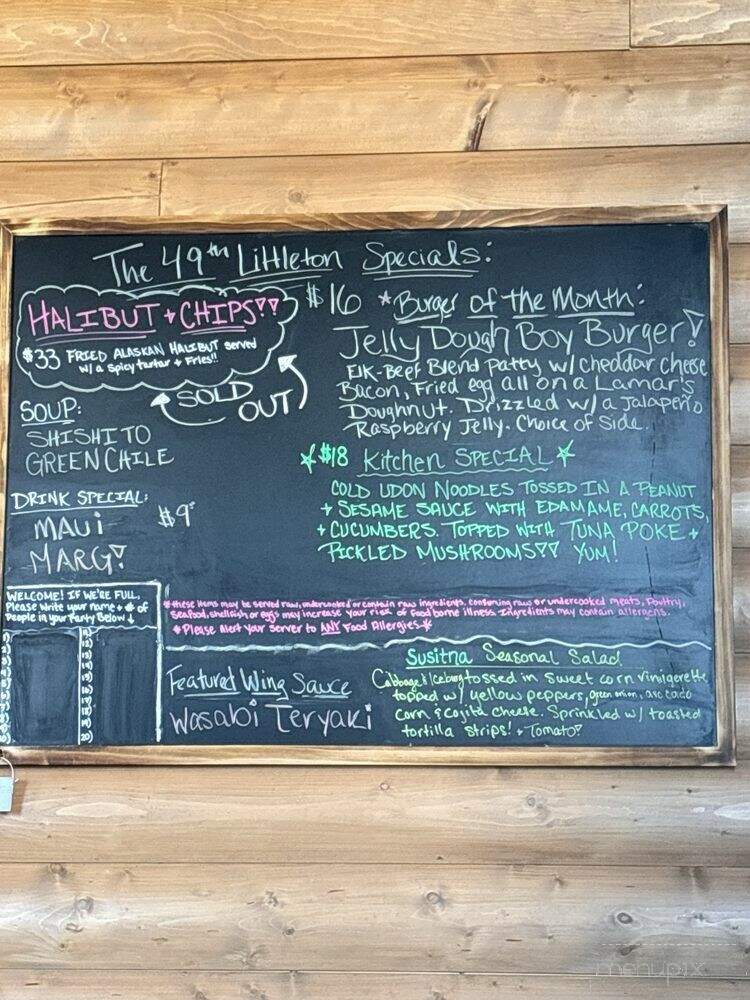 The 49th Littleton Specials:
HALIBUT + CHIPS!!
$33 FRIED ALASKAN HALIBUT served
w/ a spicy tartar + Fries!!
SOLD
OUT
SOUP:
SHISHITO
GREEN CHILE
DRINK SPECIAL:
MAUI $9
MARG!
$16 *Burger of the Month:
Jelly Dough Boy Burger!
Elk-Beef Blend patty w/ cheddar cheese
Bacon, Fried egg all on a Lamar's
Doughnut. Drizzled w/ a Jalapeño
Raspberry Jelly. Choice of Side.
$18 Kitchen SPECIAL
COLD UDON NOODLES TOSSED IN A PEANUT
+ SESAME SAUCE WITH EDAMAME, CARROTS,
+ CUCUMBERS. TOPPED WITH TUNA POKE +
PICKLED MUSHROOMS!! YUM!
WELCOME! IF WE'RE FULL,
Please write your name + # of
People in your Party Below ↓
1) 11)
2) 12)
3) 13)
4) 14)
5) 15)
6) 16)
7) 17)
8) 18)
9) 19)
10) 20)
*these items may be served raw, undercooked or contain raw ingredients. consuming raw or undercooked meats, Poultry,
seafood, shellfish or eggs may increase your risk of Food borne illness. Ingredients may contain allergens.
*Please Alert your server to ANY Food Allergies*
Featured Wing Sauce
Wasabi Teryaki
Susitna Seasonal Salad
Cabbage & Iceburg tossed in sweet corn vinigerette
topped w/ yellow peppers, green onion, avacado
corn & cojita cheese. Sprinkled w/ toasted
tortilla strips! + Tomato!
menupix